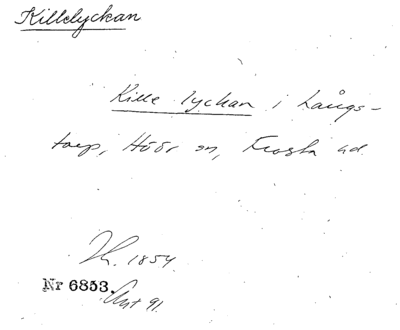 Killelyckan
Kille lyckan i Långs-
torp, Höör sn, Frosta hd.
1854.
Nr 6853.
91.